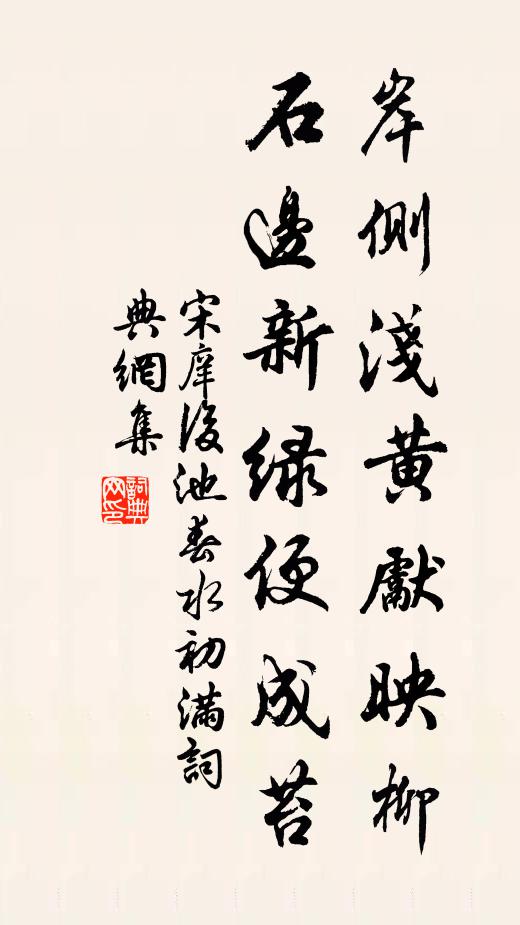 岸側淺黃獻映柳
石邊新綠便成苔
宋庠後池春水初滿詞
典網集
詞典
网印